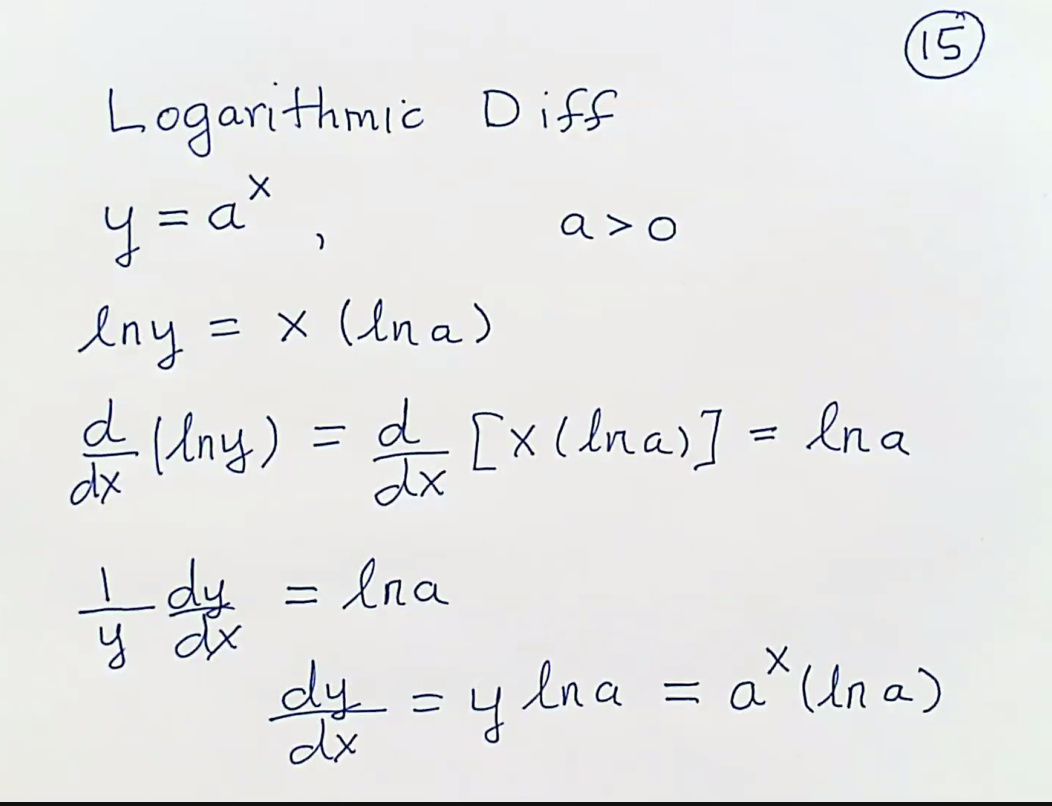 15
Logarithmic Diff
y = a^x , a > 0
ln y = x (ln a)
d/dx (ln y) = d/dx [x (ln a)] = ln a
1/y dy/dx = ln a
dy/dx = y ln a = a^x (ln a)